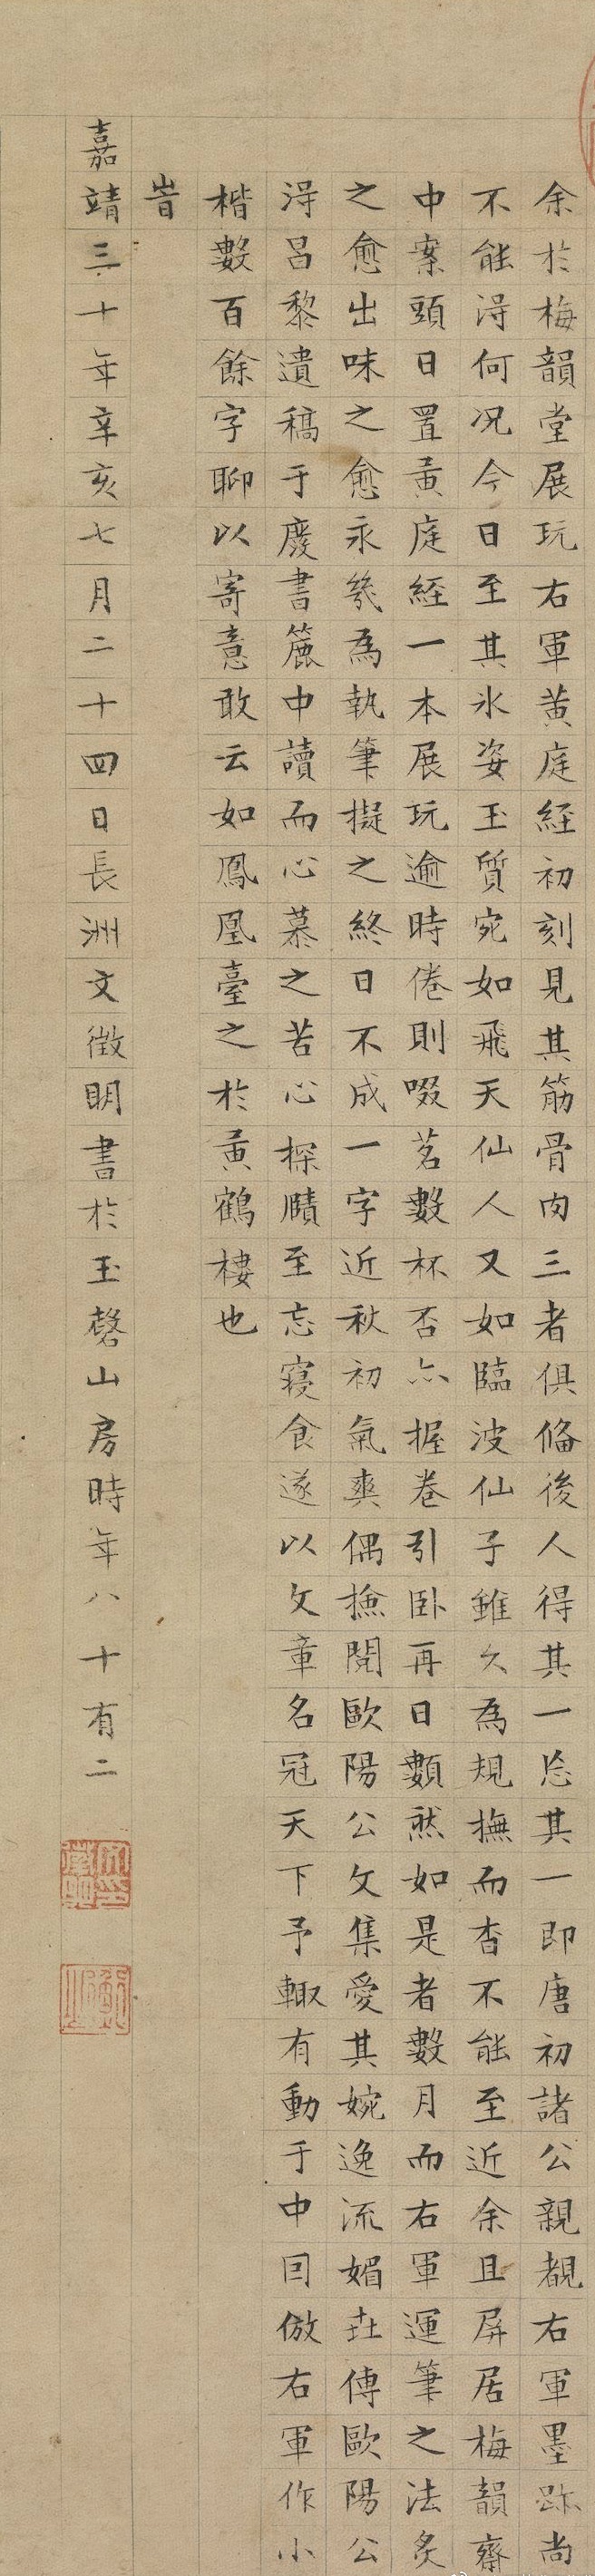 余於梅韻堂展玩右軍黃庭經初刻見其筋骨肉三者俱備後人得其一忘其一即唐初諸公親覩右軍墨跡尚
不能淂何况今日至其氷姿玉質宛如飛天仙人又如臨波仙子雖久為規撫而杳不能至近余且屏居梅韻齋
中案頭日置黃庭經一本展玩逾時倦則啜茗數杯否亦握卷引卧再日顠然如是者數月而右軍運筆之法炙
之愈出味之愈永幾為執筆擬之終日不成一字近秋初氣爽偶撿閱歐陽公文集愛其婉逸流媚其傳歐陽公
淂昌黎遺稿于廢書簏中讀而心慕之苦心探賾至忘寢食遂以文章名冠天下予輙有動于中囙倣右軍作小
楷數百餘字聊以寄意敢云如鳳凰臺之於黃鶴樓也
旹
嘉靖三十年辛亥七月二十四日長洲文徵明書於玉磬山房時年八十有二